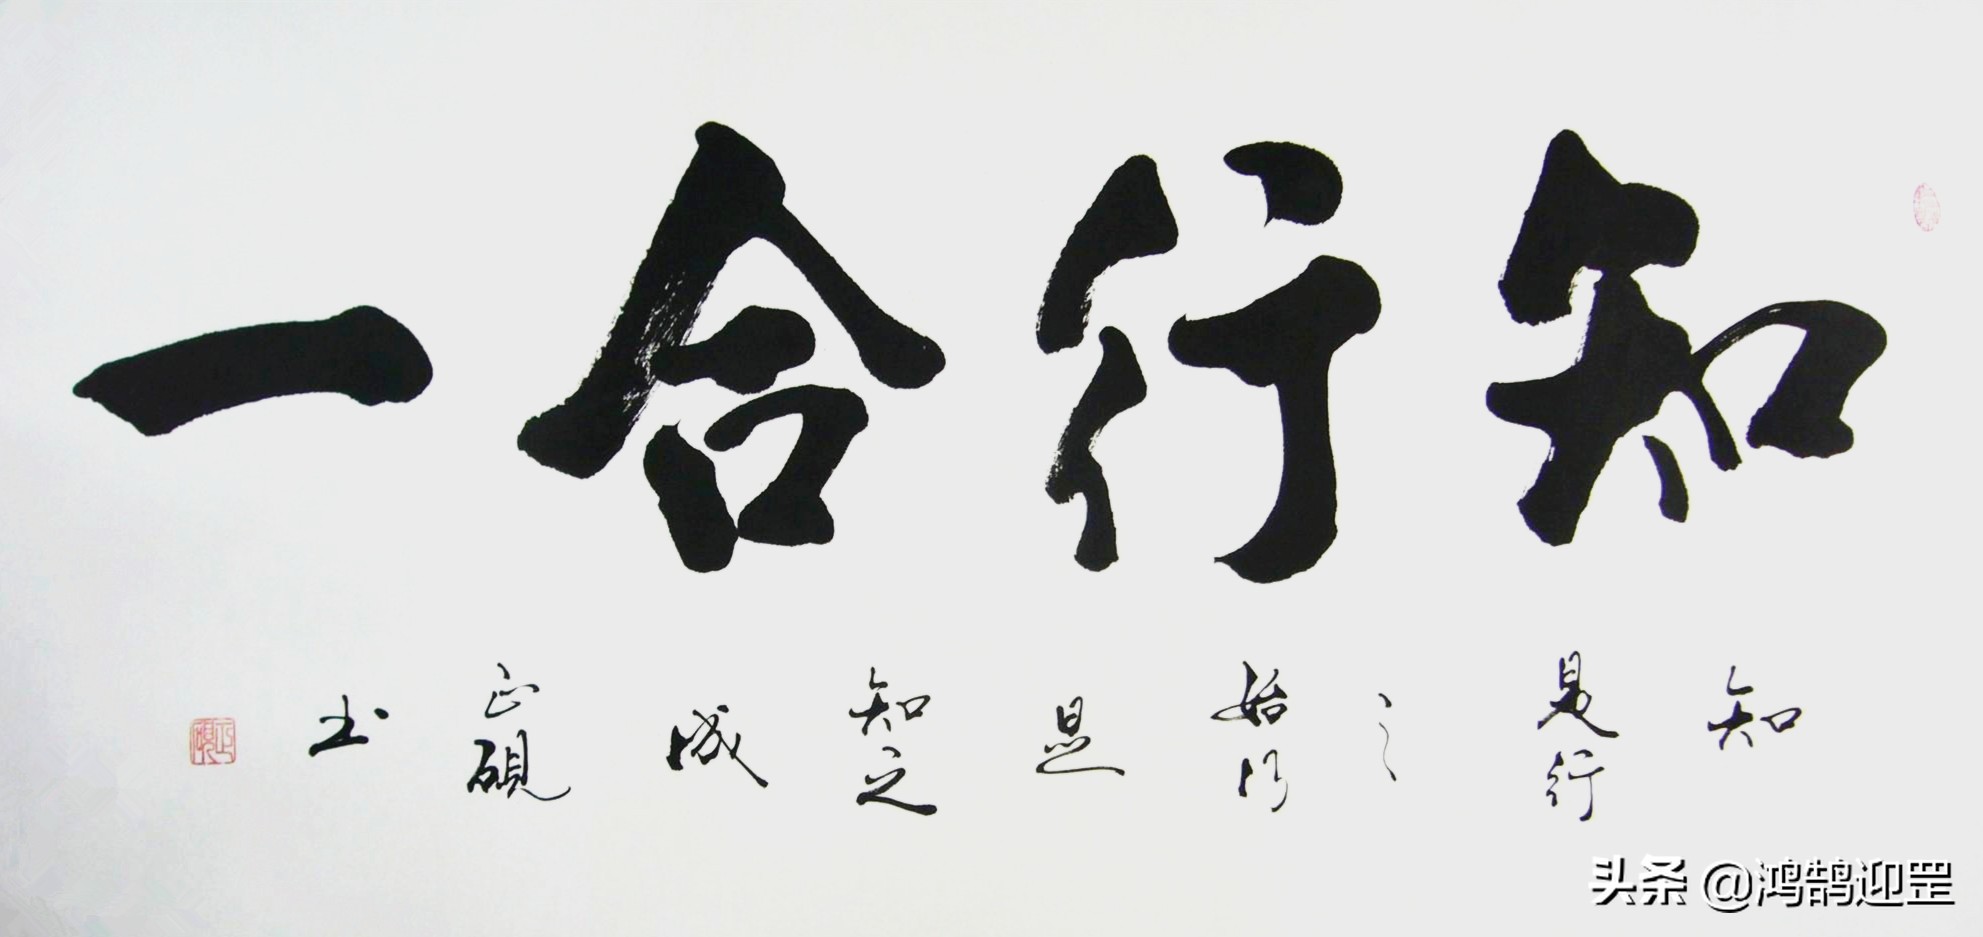 知行合一
知是行之始行是知之成正硯书
正硯
头条 @鸿鹄迎罡